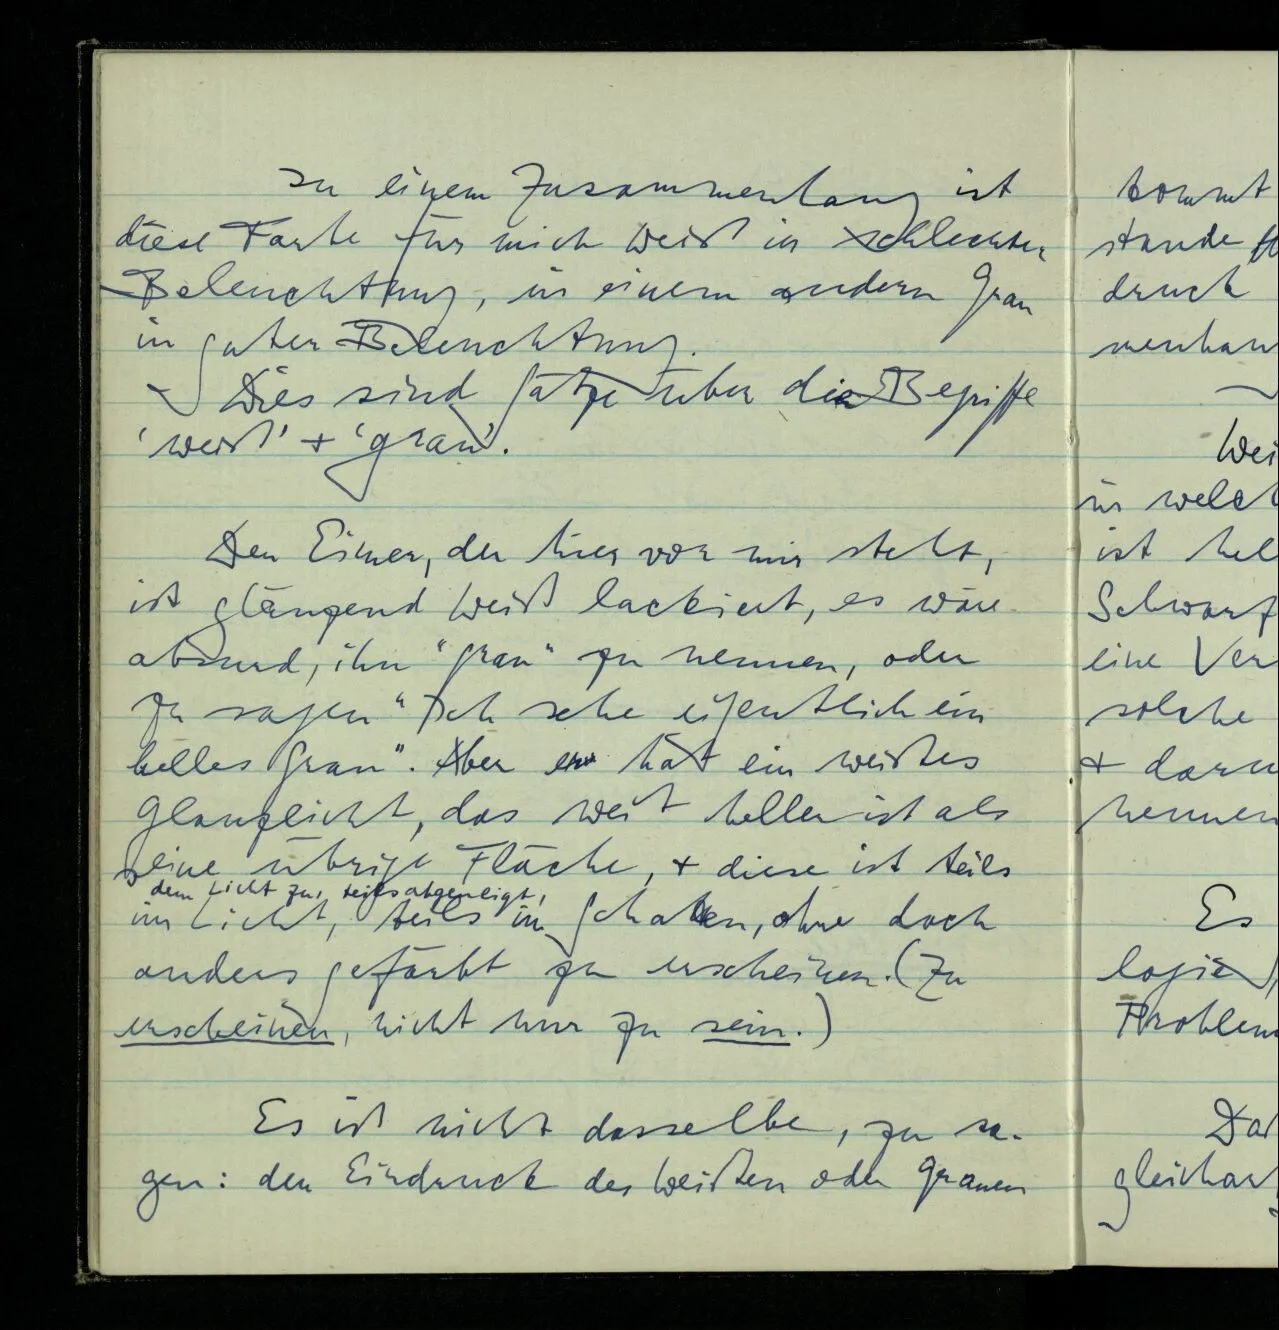 In einem Zusammenhang ist
diese Farbe für mich weiß in schlechter
Beleuchtung, in einem andern Grau
in guter Beleuchtung.
Dies sind Sätze über die Begriffe
‘weiß’ + ‘grau’.
Der Eimer, der hier vor mir steht,
ist glänzend weiß lackiert, es wäre
absurd, ihn “grau” zu nennen, oder
zu sagen “Ich sehe eigentlich ein
helles Grau”. Aber er hat ein weißes
Glanzlicht, das weit heller ist als
seine übrige Fläche, + diese ist teils
dem Licht zu, teils abgeneigt,
im Licht, teils im Schatten, ohne doch
anders gefärbt zu erscheinen. (Zu
erscheinen, nicht nur zu sein.)
Es ist nicht dasselbe, zu sa-
gen: der Eindruck des Weißen oder Grauen
kommt
stande
druck
menhan
Wei
in welch
ist hel
Schwarz
eine Ver
solche
+ daru
nennen
Es
logie
Problem
Da
gleichar